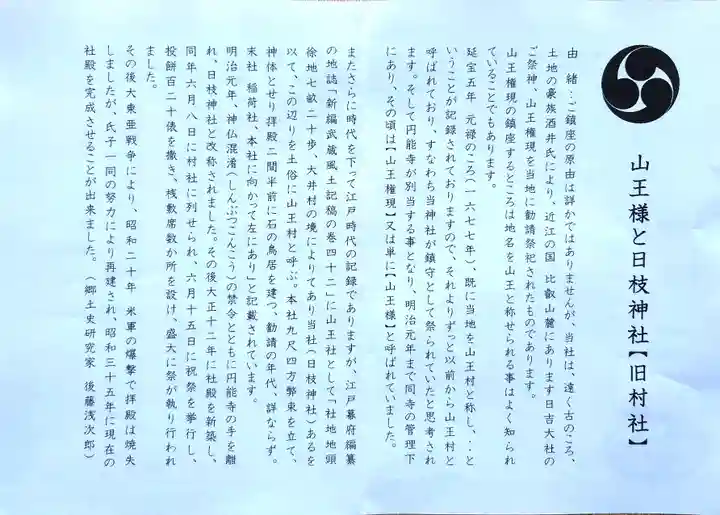 山王様と日枝神社【旧村社】
由　緒：ご鎮座の原由は詳かではありませんが、当社は、遠く古のころ、
土地の豪族酒井氏により、近江の国　比叡山麓にあります日吉大社の
ご祭神、山王権現を当地に勧請祭祀されたものであります。
山王権現の鎮座するところは地名を山王と称せられる事はよく知られ
ていることでもあります。
延宝五年　元禄のころ（一六七七年）、既に当地を山王村と称し、‥と
いうことが記録されておりますので、それよりずっと以前から山王村と
呼ばれており、すなわち当神社が鎮守として祭られていたと思考され
ます。そして円能寺が別当する事となり、明治元年まで同寺の管理下
にあり、その頃は【山王権現】又は単に【山王様】と呼ばれていました。
またさらに時代を下って江戸時代の記録でありますが、江戸幕府編纂
の地誌「新編武蔵風土記稿の巻四十二」に山王社として「社地地頭
徐地七畝二十歩、大井村の境によりてあり当社（日枝神社）あるを
以て、この辺りを土俗に山王村と呼ぶ。本社九尺四方幣束を立て、
神体とせり拝殿二間半前に石の鳥居を建つ、勧請の年代、詳ならず。
末社　稲荷社、本社に向かって左にあり」と記載されています。
明治元年、神仏混淆（しんぶつこんこう）の禁令とともに円能寺の手を離
れ、日枝神社と改称されました。その後大正十二年に社殿を新築し、
同年六月八日に村社に列せられ、六月十五日に祝祭を挙行し、
投餅百二十俵を撒き、桟敷席数か所を設け、盛大に祭が執り行われ
ました。
その後大東亜戦争により、昭和二十年　米軍の爆撃で拝殿は焼失
しましたが、氏子一同の努力により再建され、昭和三十五年に現在の
社殿を完成させることが出来ました。（郷土史研究家　後藤浅次郎）